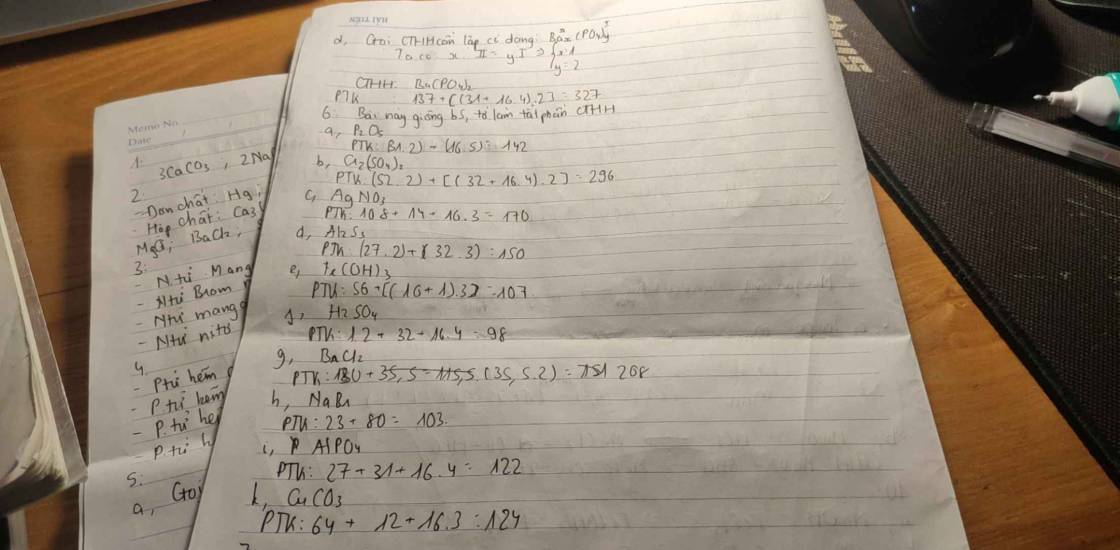 HẢI TIẾN
d, Gọi CTHH cần lập có dạng: Bax(PO4)y
Ta có x. II = y I => x=1
y=2
CTHH: Ba(PO4)2
PTK : 137 + [(31+ 16.4).2] = 327
6: Bài này giống b5, tớ làm tắt phần CTHH
a, P2O5
PTK: (31.2) - (16.5) = 142
b, Cr2(SO4)2
PTK: (52.2) + [(32+16.4).2] = 296
c, AgNO3
PTK: 108 + 14 + 16.3 = 170
d, Al2S3
PTK: (27.2) + (32.3) = 150
e, Fe(OH)3
PTK: 56 + [(16+1).3] = 107
H2SO4
PTK: 1.2 + 32 + 16.4 = 98
g, BaCl2
PTK: + 35,5 = 115,5 (35,5.2) = 151 208
h, NaBr
PTK: 23 + 80 = 103.
i, AlPO4
PTK: 27 + 31 + 16.4 = 122
k, CuCO3
PTK: 64 + 12 + 16.3 = 124
Memo No.
Date / /
1:
3CaCO3 ; 2Na
2:
- Đơn chất: Hg;
- Hợp chất: Ca3
BaCl2;
3:
- N.tử Mang
- Ntử Brom
- Ntử mang
- Ntử nitơ
4.
- Ptử kẽm
- P.tử kẽm
- P.tử
- P.tử h
5:
a, Gọi